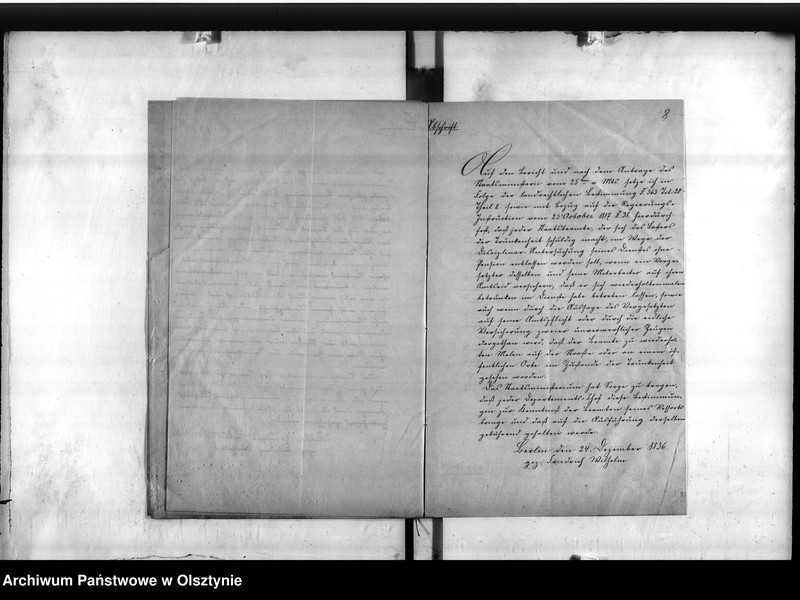 8
Abschrift
Auf den Bericht und nach dem Antrage des
Staatsministerii vom 25ten v. Mts. setze ich in
Folge der landrechtlichen Bestimmung § 363 Tit. 20
Theil 2. sowie mit Bezug auf der Regierungs-
Instruction vom 23 October 1817 § 38 hierdurch
fest, daß jeder Staatsbeamte, der sich des Lasters
der Trunkenheit schuldig macht, im Wege der
Disciplinar-Untersuchung seines Dienstes ohne
Pension entlassen werden soll, wenn ein Vorge-
setzter desselben und seine Mitarbeiter auf ihren
Amtseid versichern, daß er sich wiederholentmalen
betrunken im Dienste habe betreten lassen, sowie
auch wenn durch die Aussage des Vorgesetzten
auf seine Amtspflicht oder durch die eidliche
Versicherung zweier unverwerflicher Zeugen
dargethan wird, daß der Beamte zu wiederhol-
ten Malen auf der Straße oder an einem öf-
fentlichen Orte im Zustande der Trunkenheit
gesehen worden.
Das Staatsministerium hat Sorge zu tragen,
daß jeder Departements-Chef diese Bestimmun-
gen zur Kenntniß der Beamten seines Ressorts
bringe und daß auf die Ausführung derselben
gebührend gehalten werde.
Berlin den 24. Dezember 1836.
gez. Friedrich Wilhelm
Archiwum Państwowe w Olsztynie